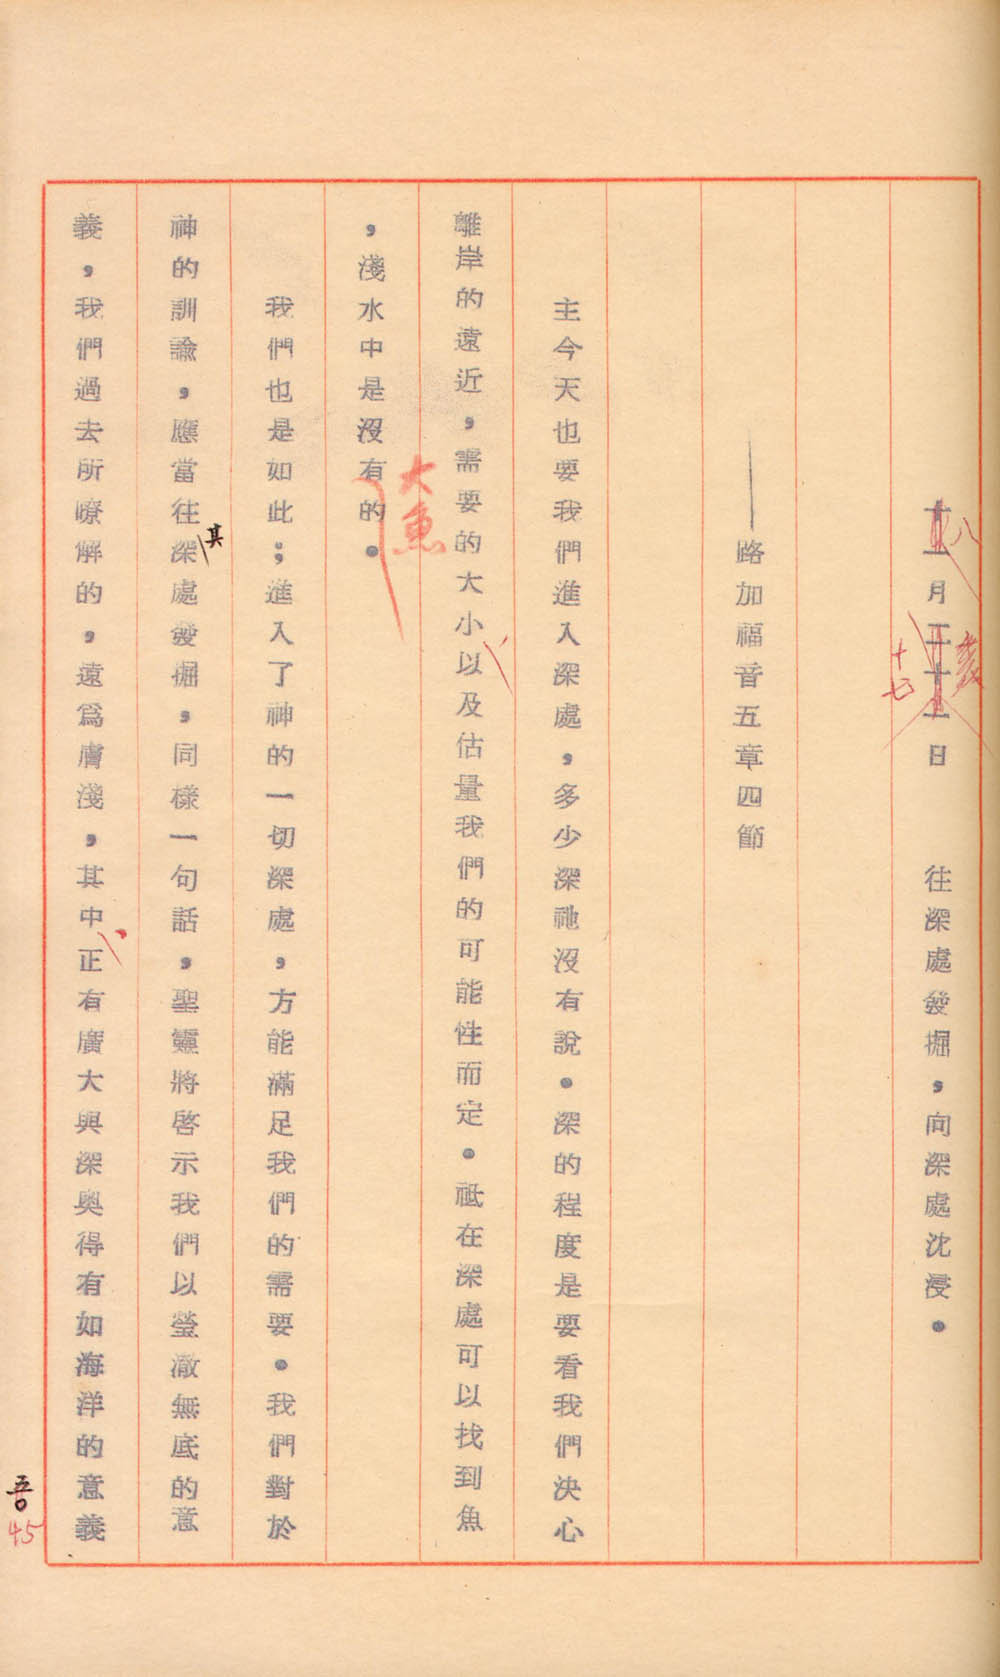 十二月二十二日　往深處發掘，向深處沈浸。
八
十七
——路加福音五章四節
主今天也要我們進入深處，多少深祂沒有說。深的程度是要看我們決心
離岸的遠近，需要的大小以及估量我們的可能性而定。祗在深處可以找到魚
、
，淺水中是沒有的。
大魚
我們也是如此；進入了神的一切深處，方能滿足我們的需要。我們對於
神的訓諭，應當往深處發掘，同樣一句話，聖靈將啓示我們以瑩澈無底的意
其
義，我們過去所暸解的，遠爲膚淺，其中正有廣大與深奧得有如海洋的意義
、
45